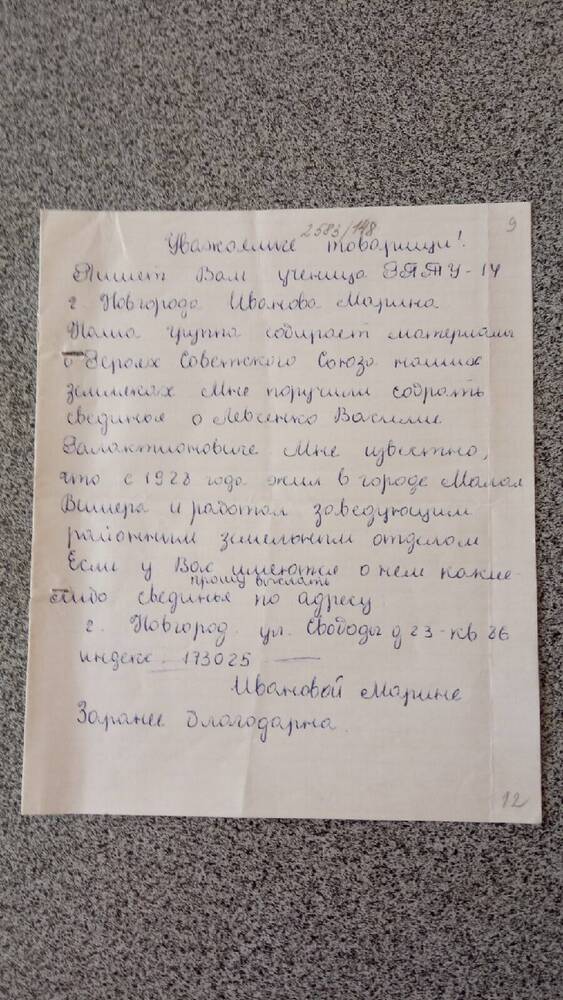 9
2583/148
Уважаемые товарищи!
Пишет Вам ученица ГПТУ-14
г. Новгорода Иванова Марина
Наша группа собирает материалы
о Героях Советского Союза наших
земляках Мне поручили собрать
свединья о Левченко Василие
Галактионовиче Мне известно,
что с 1928 года жил в городе Малая
Вишера и работал заведующим
районным земельным отделом
Если у Вас имеются о нем какие
прошу выслать
либо свединья по адресу
г. Новгород ул. Свободы д 23-кв 26
индекс 173025
Ивановой Марине
Заранее благодарна.
12